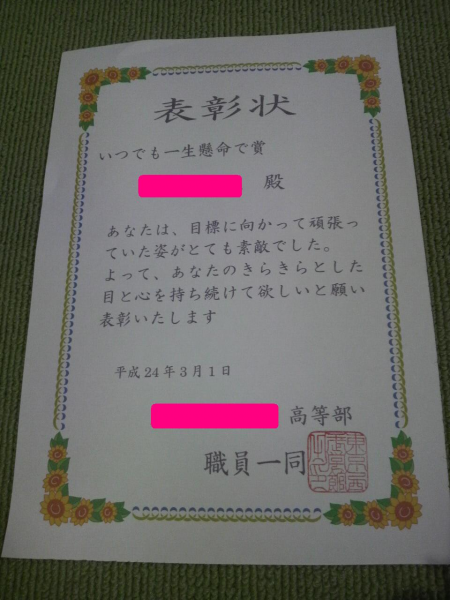 表彰状
いつでも一生懸命で賞
殿
あなたは、目標に向かって頑張っ
ていた姿がとても素敵でした。
よって、あなたのきらきらとした
目と心を持ち続けて欲しいと願い
表彰いたします
平成24年3月1日
高等部
職員一同